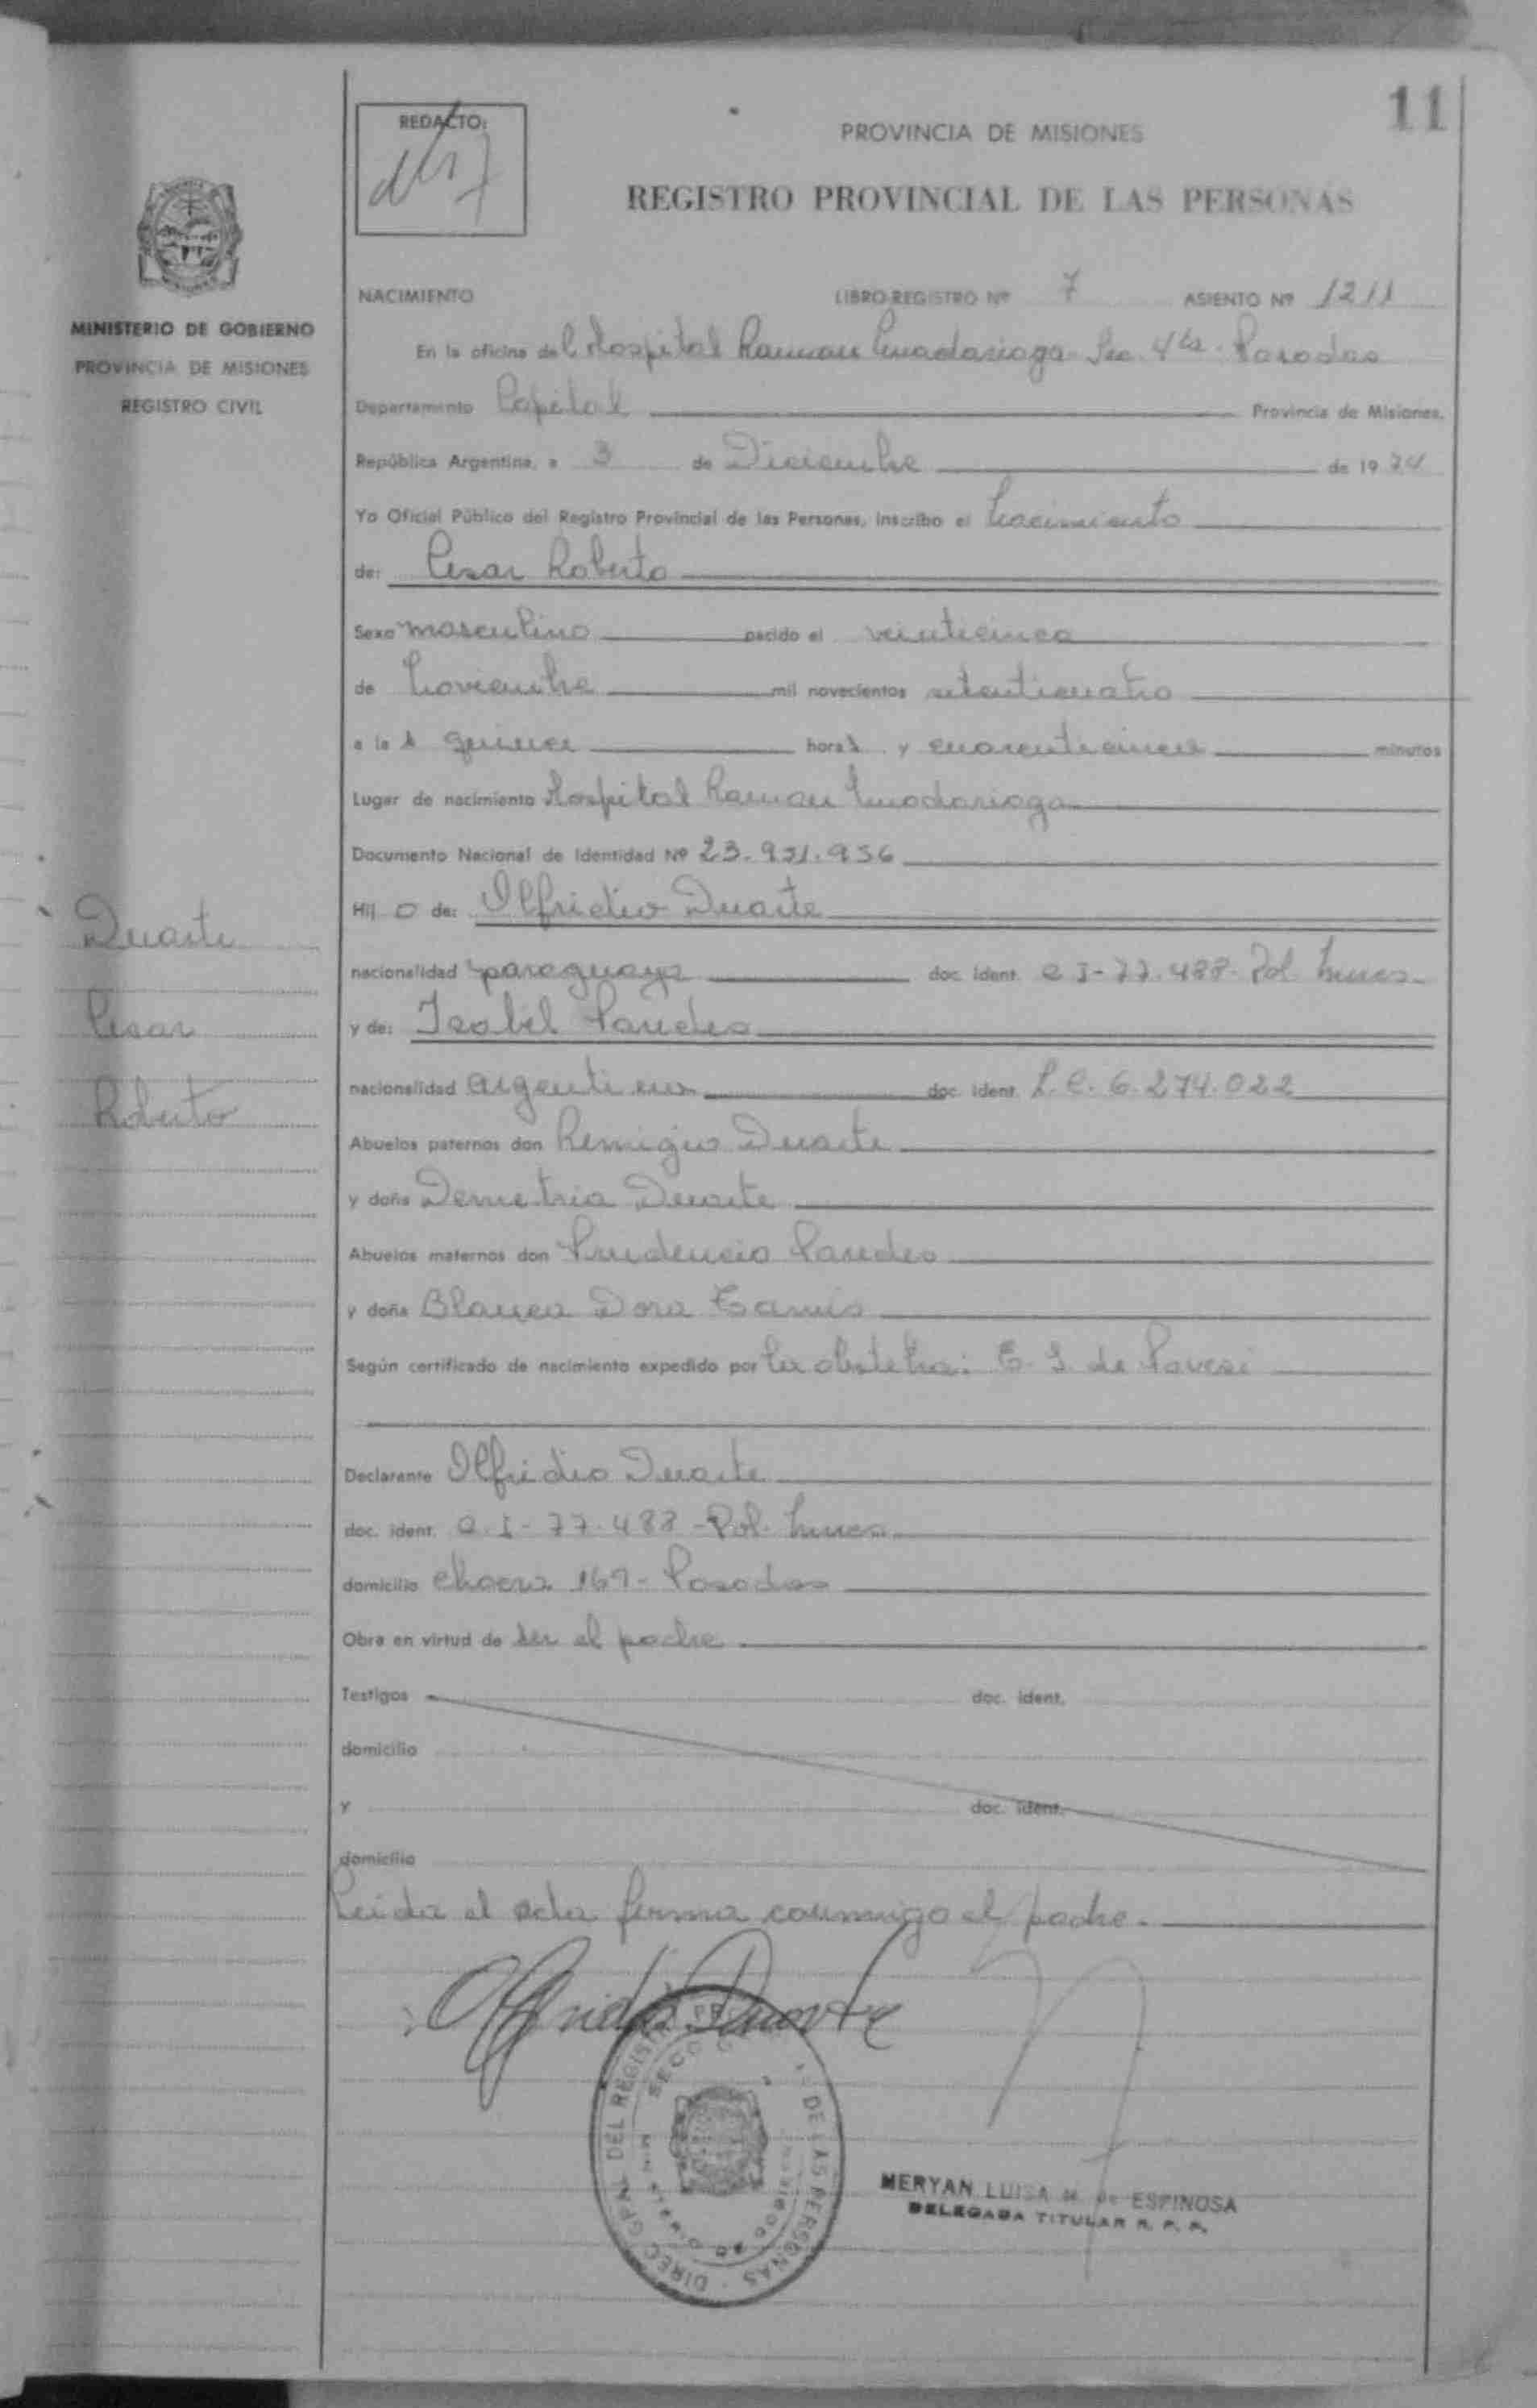 11
REDACTO:
PROVINCIA DE MISIONES
REGISTRO PROVINCIAL DE LAS PERSONAS
MINISTERIO DE GOBIERNO
PROVINCIA DE MISIONES
REGISTRO CIVIL
NACIMIENTO LIBRO REGISTRO Nº 7 ASIENTO Nº 1211
En la oficina del Hospital Ramon Madariaga Sec. 4ta. Posadas
Departamento Capital Provincia de Misiones.
República Argentina, a 3 de Diciembre de 1974
Yo Oficial Público del Registro Provincial de las Personas, inscribo el Nacimiento
de: Cesar Roberto
Sexo masculino nacido el veinticinco
de Noviembre mil novecientos setenticuatro
a las quince horas y cuarenticinco minutos
Lugar de nacimiento Hospital Ramon Madariaga
Documento Nacional de Identidad Nº 23.951.956
Hijo de: Olfridio Duarte
nacionalidad paraguaya doc. ident. C I- 77.488- Pol. Mnes.
y de: Isabel Paredes
nacionalidad argentina doc. ident. L.C. 6.274.022
Abuelos paternos don Remigio Duarte
y doña Demetria Duarte
Abuelos maternos don Prudencio Paredes
y doña Blanca Dora
Según certificado de nacimiento expedido por la obstetra: E. S. de
Declarante Olfridio Duarte
doc. ident. C.I- 77.488 -Pol. Mnes.
domicilio chacra 169- Posadas
Obra en virtud de ser el padre
Testigos doc. ident.
domicilio
y doc. ident.
domicilio
Leida el acta firma conmigo el padre.
Olfridio Duarte
Duarte
Cesar
Roberto
DIREC. GRAL. DEL REGISTRO DE LAS PERSONAS
MERYAN LUISA M. de ESPINOSA
DELEGADA TITULAR R. P. P.